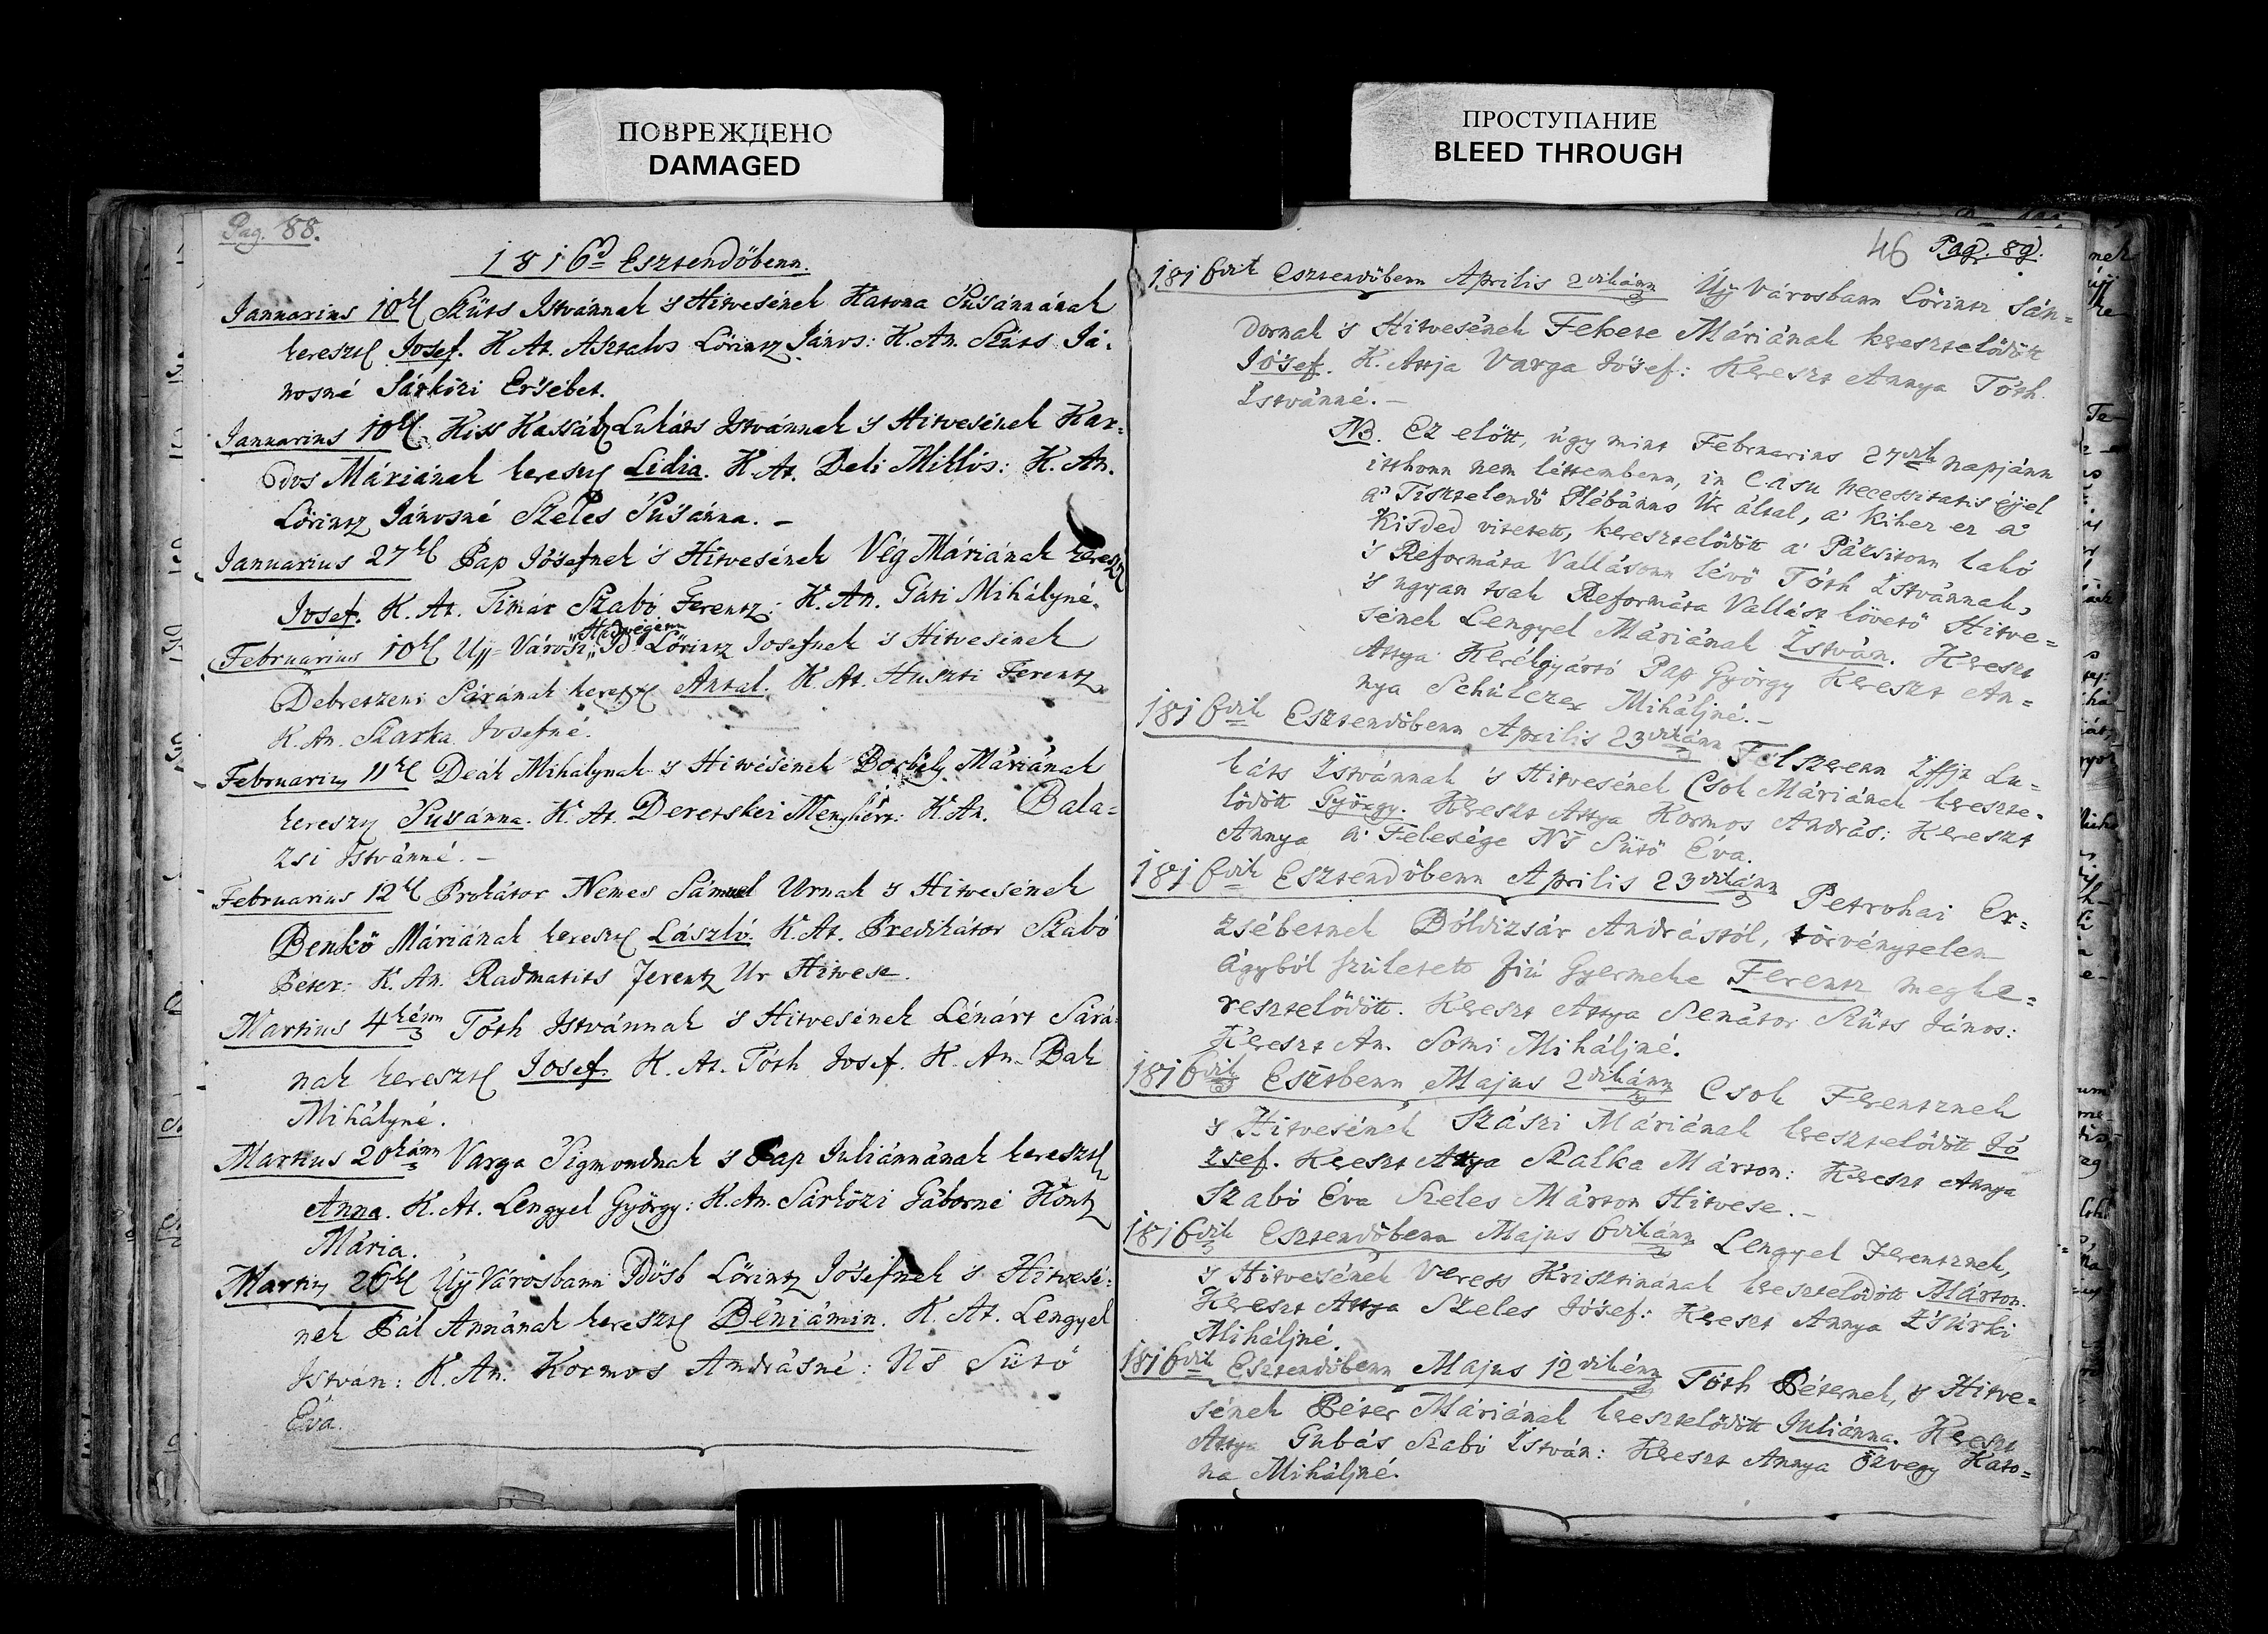 ПОВРЕЖДЕНО
DAMAGED
ПРОСТУПАНИЕ
BLEED THROUGH
Pag. 88.
1816d Esztendőbenn.
Januarius 10k Szűts Istvánnak 's Hitvesének Katona Susánnának
kereszt Josef. K. At. Asztalos Lőrintz János: K. An. Szűts Já-
nosné Sárközi Ersébet.
Januarius 10k Kiss Kassátz Lukáts Istvánnak 's Hitvesének Kar-
dos Máriának kereszt Lidia. K. At. Deli Miklós: K. An.
Lőrintz Jánosné Szeles Susánna. –
Januarius 27k Pap Jósefnek 's Hitvesének Vég Máriának kereszt
Josef. K. At. Timár Szabó Ferentz: K. An. Gáti Mihályné.
Februárius 10k Ujj-Városi Lőrintz Josefnek 's Hitvesének
Debretzeni Sárának kereszt Antal. K. At. Huszti Ferentz
K. An. Szarka Josefné.
Februarius 11k Deák Mihálynak 's Hitvesének Borbély Máriának
kereszt Susánna. K. At. Deretskei Menyhért: K. An. Bala-
zsi Istvánné. –
Februarius 12k Prokátor Nemes Sámuel Urnak 's Hitvesének
Benkő Máriának kereszt László. K. At. Predikátor Szabó
Péter: K. An. Radmatits Ferentz Ur Hitvese.
Martius 4kénn Tóth Istvánnak 's Hitvesének Lénárt Sárá-
nak kereszt Josef. K. At. Tóth Josef. K. An. Bak
Mihályné.
Martius 20kánn Varga Sigmondnak 's Pap Juliánnának kereszt
Anna. K. At. Lengyel György: K. An. Sárközi Gáborné Kontz
Mária.
Martius 26k Ujj Városbann Lőrintz Jósefnek 's Hitvesé-
nek Pál Annának kereszt Béniámin. K. At. Lengyel
István: K. An. Kormos Andrásné: Ns Sütő
Éva.
46 Pag. 89.
1816dik Esztendőbenn Aprilis 2dikánn Ujj Városbann Lőrintz Sán-
dornak 's Hitvesének Fekete Máriának keresztelődött
Jósef. K. Attja Varga Jósef: Kereszt Annya Tóth
Istvánné. –
NB. Ez előtt, úgy mint Februarius 27dik napjánn
itthonn nem léttembenn, in Casu necessitatis éjjel
a' Tisztelendő Plébánus Úr által, a' kihez ez a'
kisded vitetett, keresztelődött a' Pázsitonn lakó
's Reformáta Vallásonn lévő Tóth Istvánnak,
's ugyan tsak Reformáta Vallást követő Hitve-
sének Lengyel Máriának István. Kereszt
Attya Kerékgyártó Pap György Kereszt An-
nya Schulczer Miháljné. –
1816dik Esztendőbenn Aprilis 23dikánn Félszerenn Iffju Lu-
káts Istvánnak 's Hitvesének Csok Máriának kereszte-
lődött György. Kereszt Attya Kormos András: Kereszt
Annya a' Felesége Ns Sütő Éva.
1816dik Esztendőbenn Aprilis 23dikánn Petrohai Er-
zsébetnek Bóldizsár Andrástól, törvénytelen
ágyból született fiú Gyermeke Ferentz megke-
resztelődött. Kereszt Attya Senátor Szűts János:
Kereszt An. Somi Miháljné.
1816dik Esztbenn Majus 2dikánn Csok Ferentznek
's Hitvesének Szászi Máriának keresztelődött Jó
zsef. Kereszt Attya Szalka Márton: Kereszt Annya
Szabó Éva Szeles Márton Hitvese. –
1816dik Esztendőbenn Majus 6dikánn Lengyel Ferentznek,
's Hitvesének Veress Krisztinának keresztelődött Márton.
Kereszt Attya Szeles Jósef: Kereszt Annya
Miháljné.
1816dik Esztendőbenn Majus 12dikénn Tóth Péternek, 's Hitve-
sének Péter Máriának keresztelődött Juliánna. Kereszt
Attya Gubás Szabó István: Kereszt Annya Özvegy Kato-
na Miháljné.